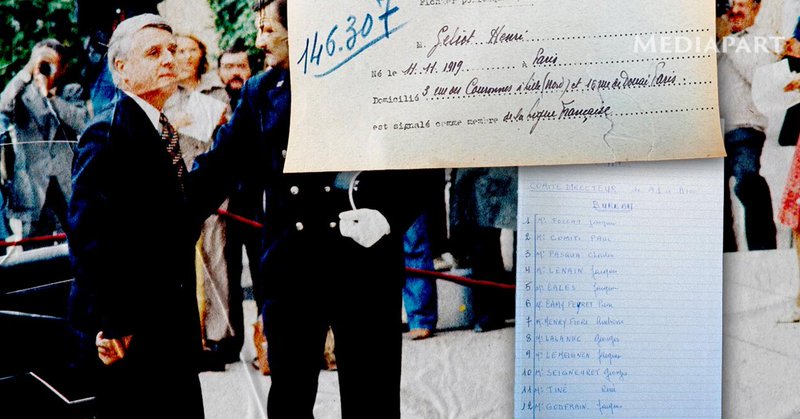 Fichier
146.307
M. Geliot Henri
Né le 11.11.1919 à Paris
Domicilié 3 rue des Couronnes à Lille (Nord) et 16 rue de Douai Paris
est signalé comme membre de la Ligue Française
MEDIAPART
COMITE DIRECTEUR
BUREAU
1 Mr FOCCART Jacques
2 Mr COMITI PAUL
3 Mr PASQUA Charles
4 Mr LENAIN Jacques
5 Mr EALES Jacques
6 M. EAMY PEYRET
7 M. HENRY FIORE
8 Mr LALANNE Georges
9 Mr LEMEUNEN Jacques
10 Mr SEIGNEURET Georges
11 Mr TINE René
12 Mr GODFRAIN Jacques